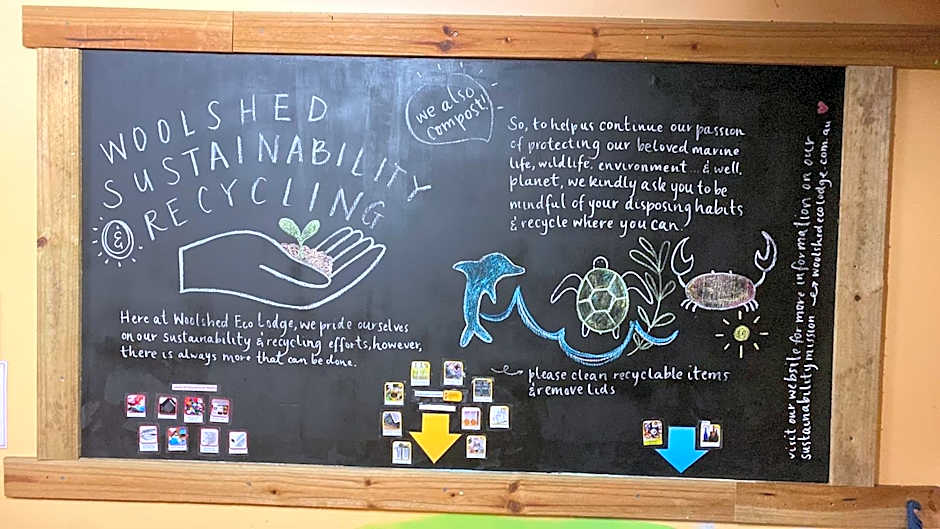 WOOLSHED
SUSTAINABILITY
& RECYCLING
we also
compost!
Here at Woolshed Eco Lodge, we pride ourselves
on our sustainability & recycling efforts, however,
there is always more that can be done.
So, to help us continue our passion
of protecting our beloved marine
life, wildlife, environment... & well,
planet, we kindly ask you to be
mindful of your disposing habits
& recycle where you can.
please clean recyclable items
& remove lids
visit our website for more information on our
sustainability mission → woolshedecolodge.com.au